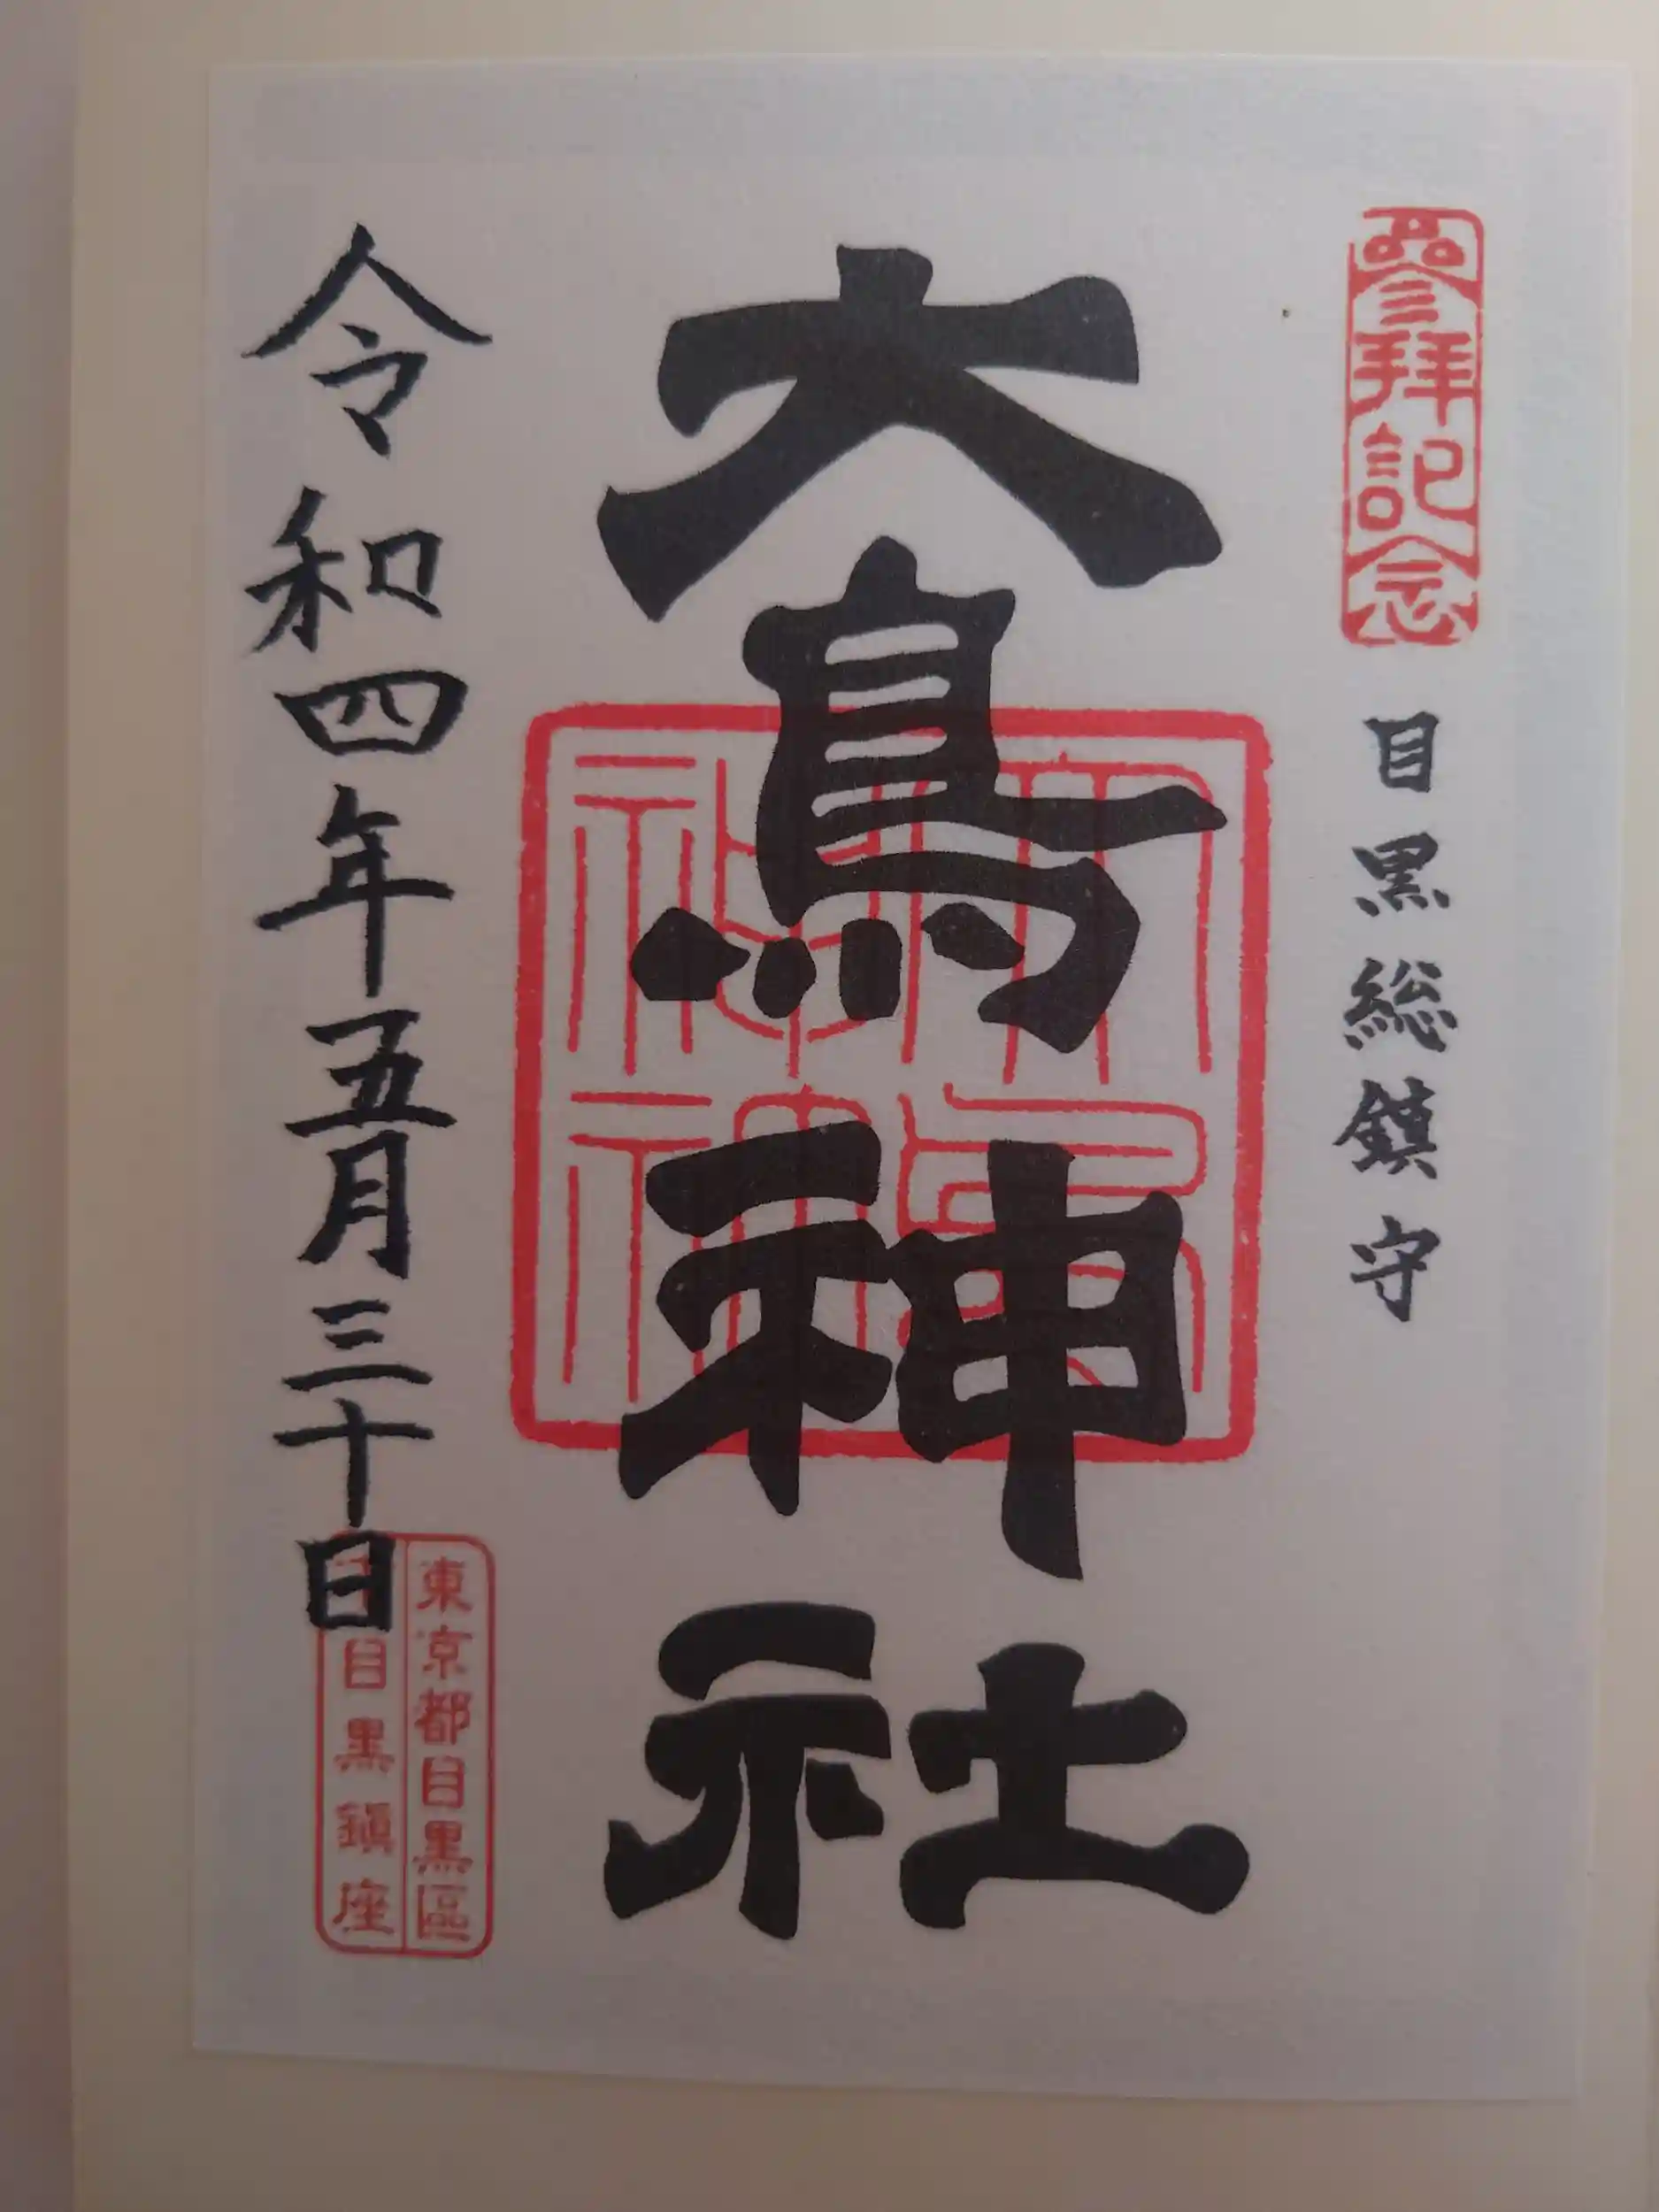 參拝記念
目黒総鎮守
大鳥神社
令和四年五月三十日
東京都目黒區
目黒鎮座